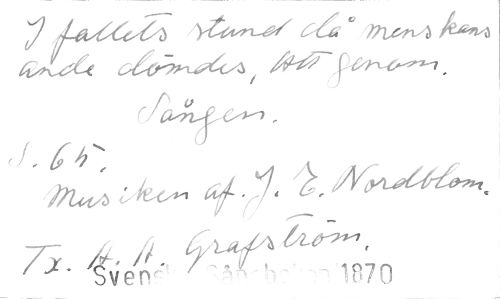 I fallets stund då menskans
ande dömdes, Att genom.
Sången.
S. 65.
Musiken af. J. E. Nordblom.
Tx. A. A. Grafström.
Svensk Sångboken 1870